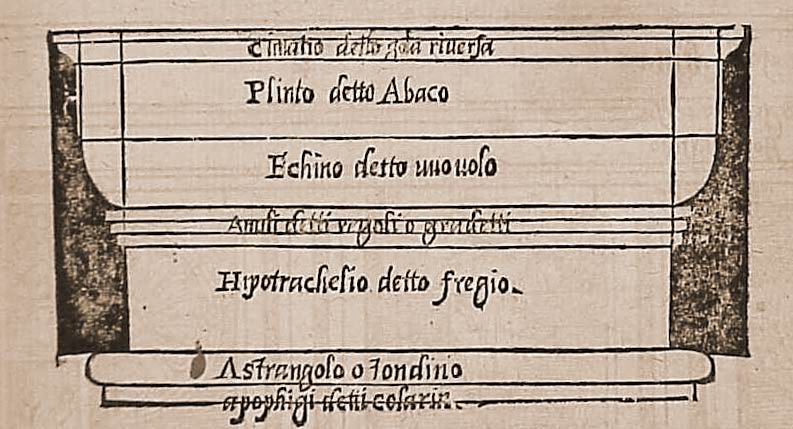 Cimatio detto gola riversa
Plinto detto Abaco
Echino detto uuouolo
Anuli detti regoli o gradetti
Hipotrachelio detto fregio.
Astrangolo o Tondino
apophigi detti colarin.